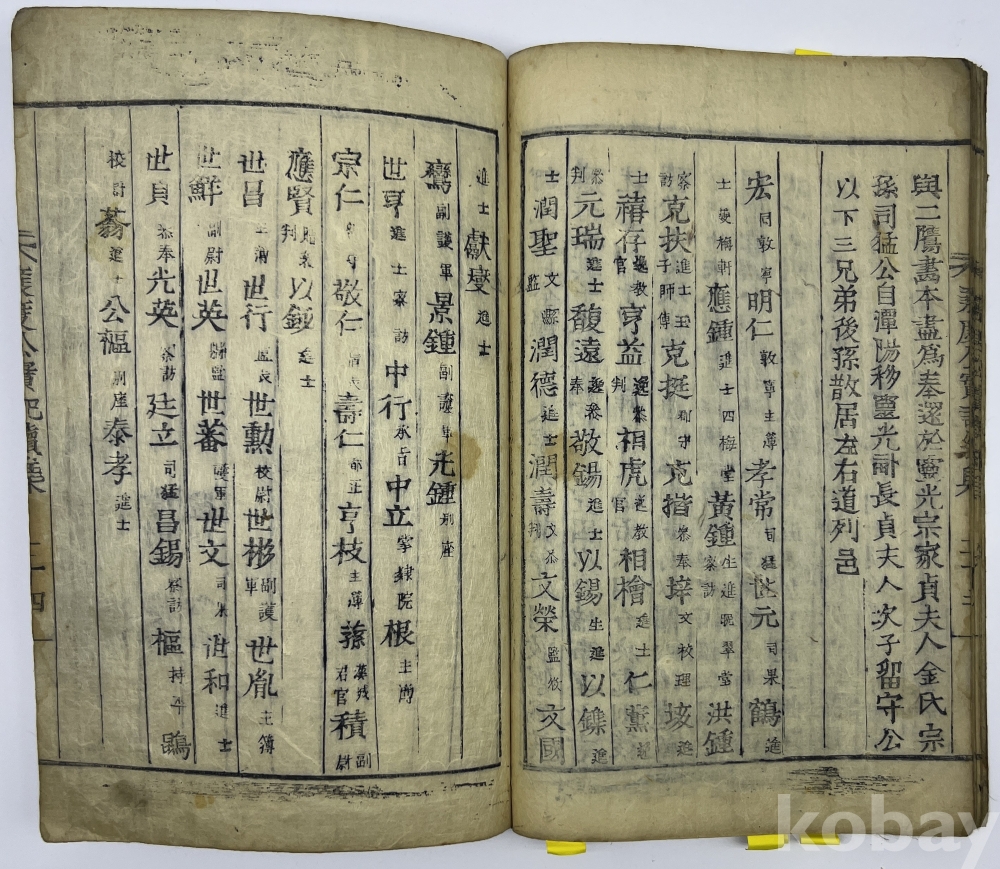 與二鷹畵本盡爲奉還於靈光宗家貞夫人金氏宗
孫司猛公自潭陽移靈光計長貞夫人次子留守公
以下三兄弟後孫散居左右道列邑
宏同敦寧明仁敦寧主簿孝常司猛世元司果鶴進
士 梅軒應鍾進士四梅堂黃鍾生進晩翠堂察訪洪鍾
察訪克扶進士王子師傅克挺郡守克揩參奉垶文校理垓進
士禧存進敎官亨益進參判相虎進敎官相檜進士仁薰進
參判元瑞進士馥遠進參奉敬錫進士以錫生進以鏶進
士潤聖文縣監潤德進士潤壽文參判文榮監役文國
進士獻燮進士
鸞副護軍景鍾副護軍光鍾副座
世亨進士察訪中行承旨中立掌隷院根主簿
宗仁 敬仁 壽仁 亨枝主簿蓀漢城右官積副尉
應賢 以鍾進士
世昌 世行監役世勲校尉世彬副護軍世胤主簿
世鮮副尉世英縣監世蕃護軍世文司果 和進士
世貞參奉光英察訪廷立司猛昌錫察訪樞持平鵾
校尉 進士公樞副座泰孝進士